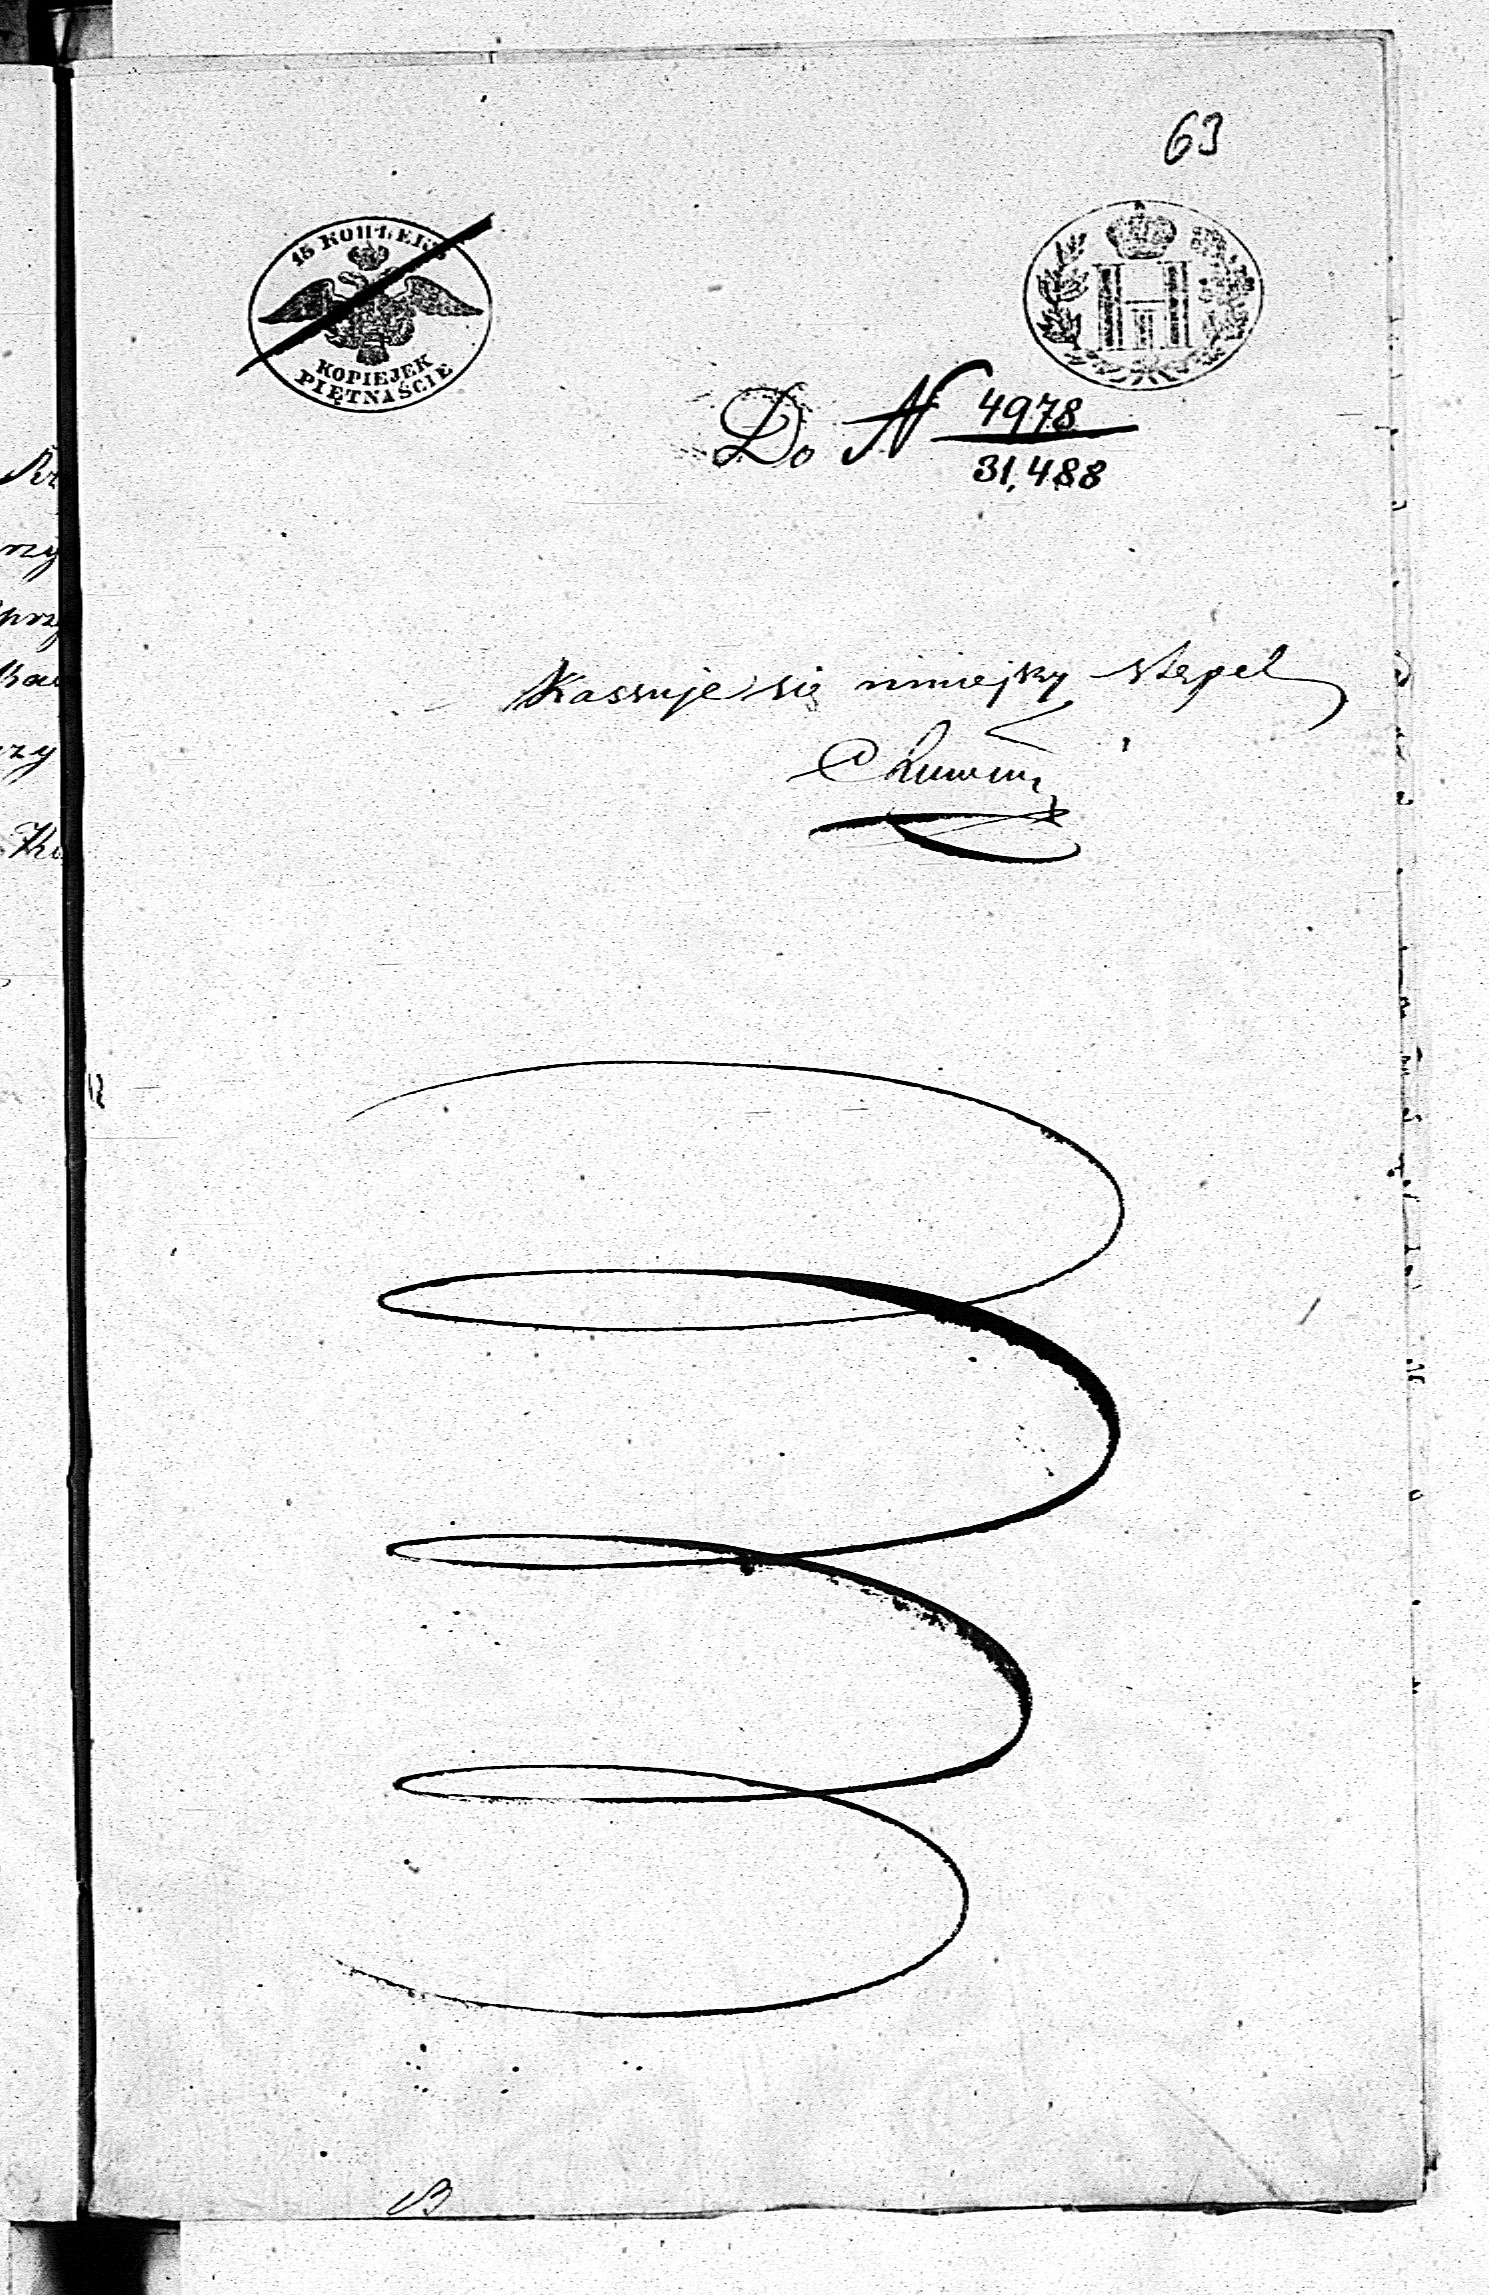 63
15 КОПѢЕКЪ
KOPIEJEK
PIĘTNAŚCIE
Do N 4978
31,488
Kassuje się niniejszy stępel